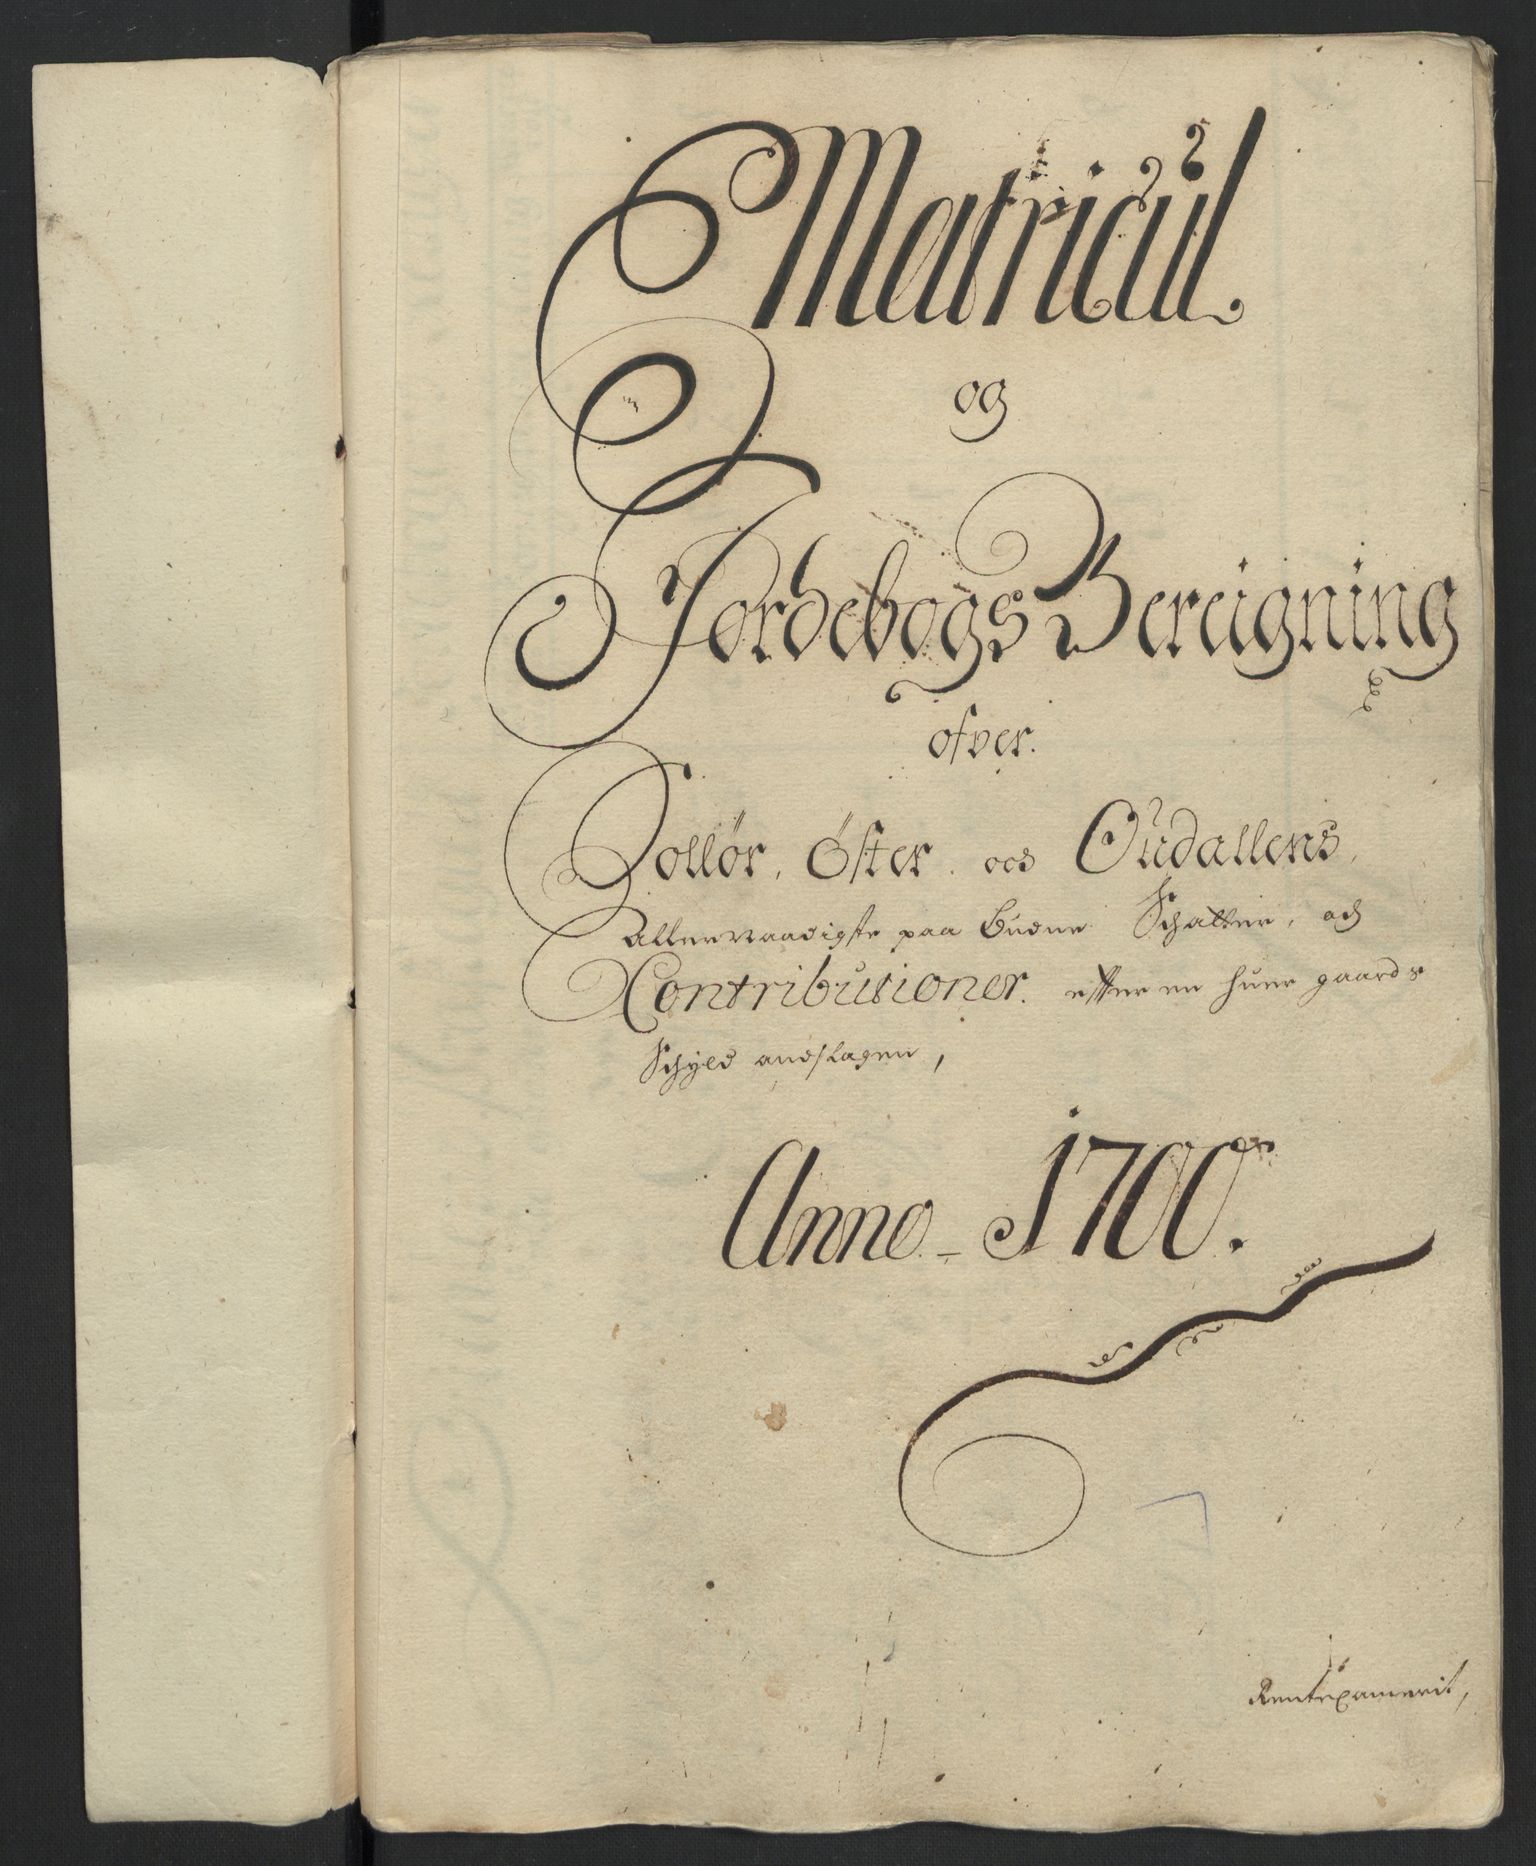 Matricul
og
Jordebogs Bereigning
ofver.
Sollør, Øster. och Oudallens,
Allernaadigste paa budne Schatter, och
Contributioner. efter en huer gaards
Schyld andslagen,
Anno - 1700.
Rentecammerit,